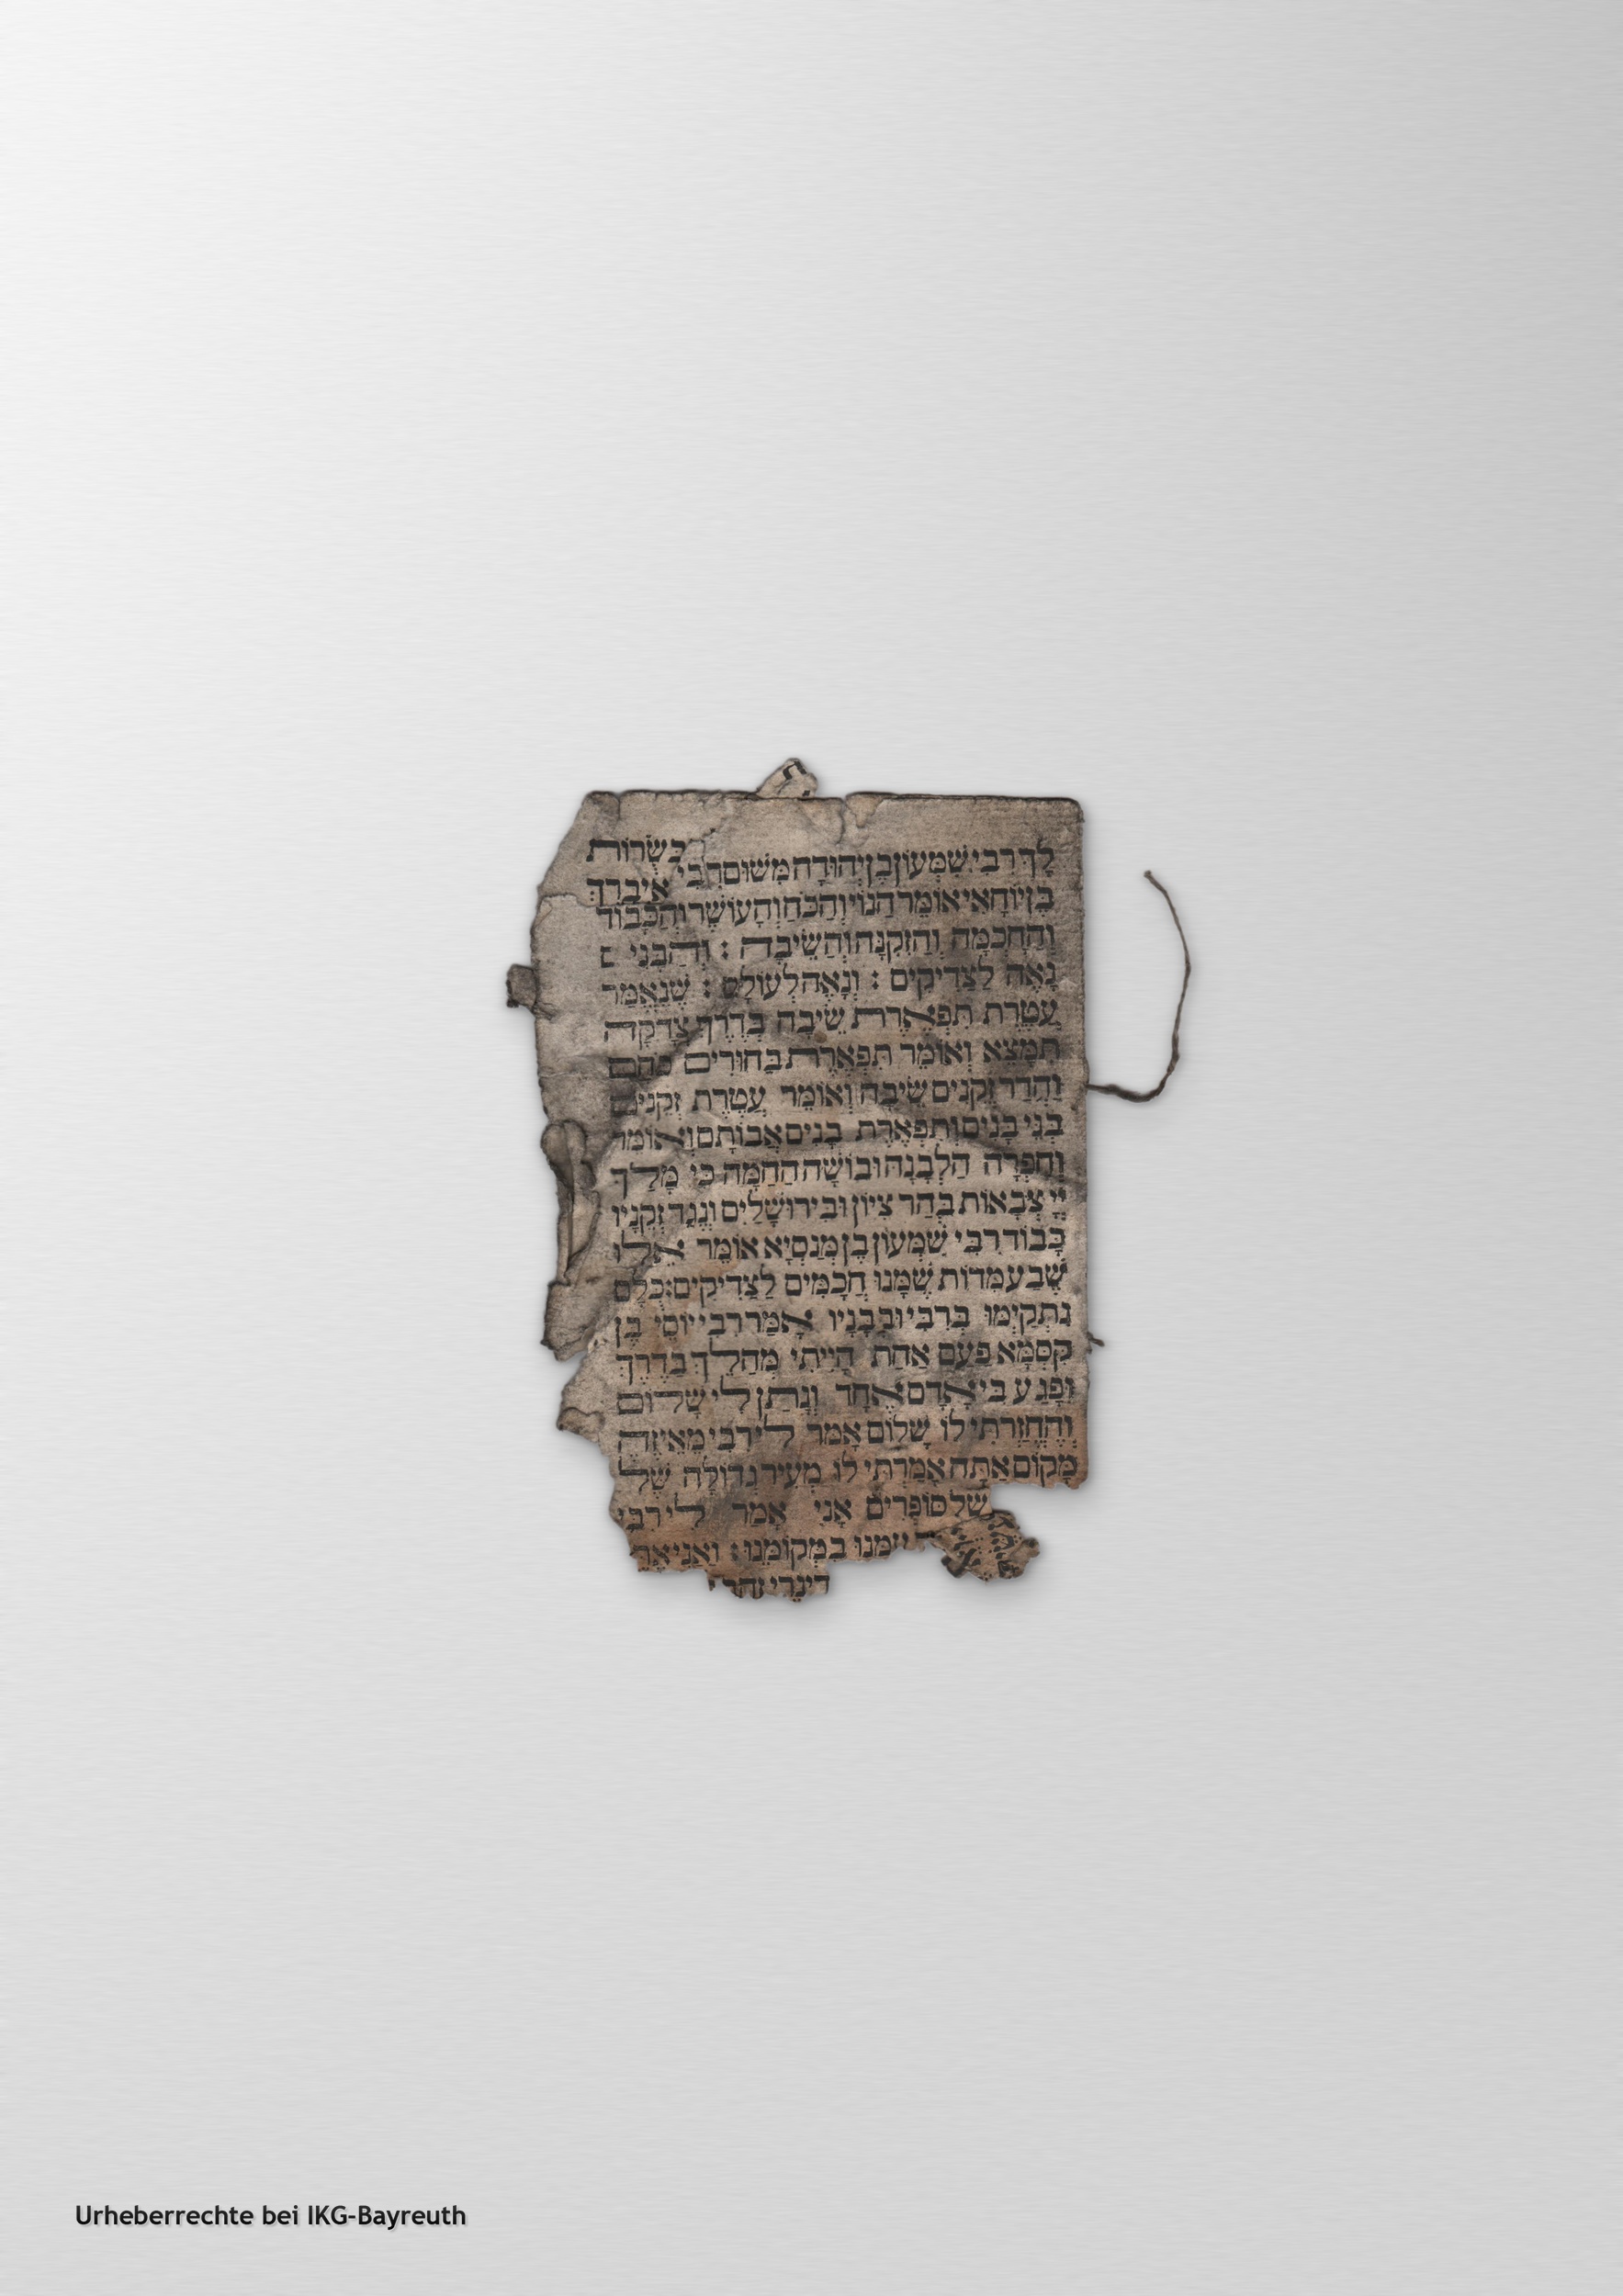 לָךְ רַבִּי שִׁמְעוֹן בֶּן יְהוּדָה מִשּׁוּם רַבִּי
בֶּן יוֹחָאִי אוֹמֵר הַנּוֹי וְהַכֹּחַ וְהָעוֹשֶׁר וְהַכָּבוֹד
וְהַחָכְמָה וְהַזִּקְנָה וְהַשֵּׂיבָה : וְהַבָּנִים
נָאֶה לַצַּדִּיקִים : וְנָאֶה לְעוֹלָם : שֶׁנֶּאֱמַר
עֲטֶרֶת תִּפְאֶרֶת שֵׂיבָה בְּדֶרֶךְ צְדָקָה
תִּמָּצֵא וְאוֹמֵר תִּפְאֶרֶת בַּחוּרִים כֹּחָם
וַהֲדַר זְקֵנִים שֵׂיבָה וְאוֹמֵר עֲטֶרֶת זְקֵנִים
בְּנֵי בָנִים וְתִפְאֶרֶת בָּנִים אֲבוֹתָם וְאוֹמֵר
וְחָפְרָה הַלְּבָנָה וּבוֹשָׁה הַחַמָּה כִּי מָלַךְ
יְיָ צְבָאוֹת בְּהַר צִיּוֹן וּבִירוּשָׁלַיִם וְנֶגֶד זְקֵנָיו
כָּבוֹד רַבִּי שִׁמְעוֹן בֶּן מְנַסְיָא אוֹמֵר אֵלּוּ
שֶׁבַע מִדּוֹת שֶׁמָּנוּ חֲכָמִים לַצַּדִּיקִים : כֻּלָּם
נִתְקַיְּמוּ בְּרַבִּי וּבְבָנָיו אָמַר רַבִּי יוֹסֵי בֶּן
קִסְמָא פַּעַם אַחַת הָיִיתִי מְהַלֵּךְ בַּדֶּרֶךְ
וּפָגַע בִּי אָדָם אֶחָד וְנָתַן לִי שָׁלוֹם
וְהֶחֱזַרְתִּי לוֹ שָׁלוֹם אָמַר לִי רַבִּי מֵאֵיזֶה
מָקוֹם אַתָּה אָמַרְתִּי לוֹ מֵעִיר גְּדוֹלָה שֶׁל
שֶׁל סוֹפְרִים אָנִי אָמַר לִי רַבִּי
עִמָּנוּ בִּמְקוֹמֵנוּ : וַאֲנִי
דִּינְרֵי זָהָב
Urheberrechte bei IKG-Bayreuth